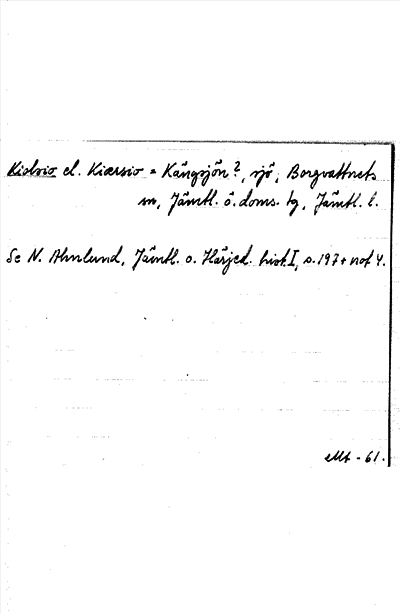 Kiolsio el. Kiærsio = Kångsjön?, sjö, Borgvattnets
sn, Jämtl. ö. doms. tg, Jämtl. l.
Se N. Ahnlund, Jämtl. o. Härjed. hist. I, s. 197 + not 4.
-61.